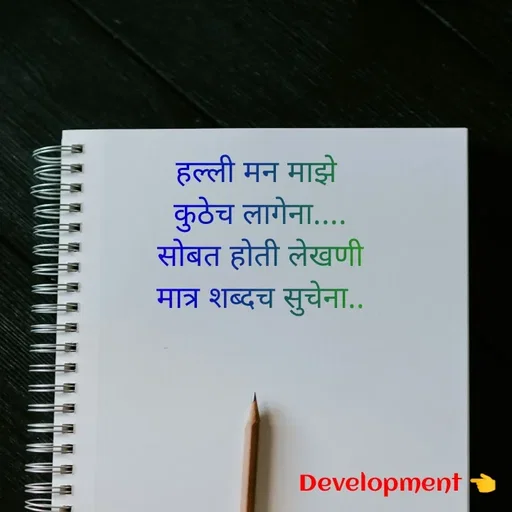 हल्ली मन माझे
कुठेच लागेना....
सोबत होती लेखणी
मात्र शब्दच सुचेना..
Development 👈